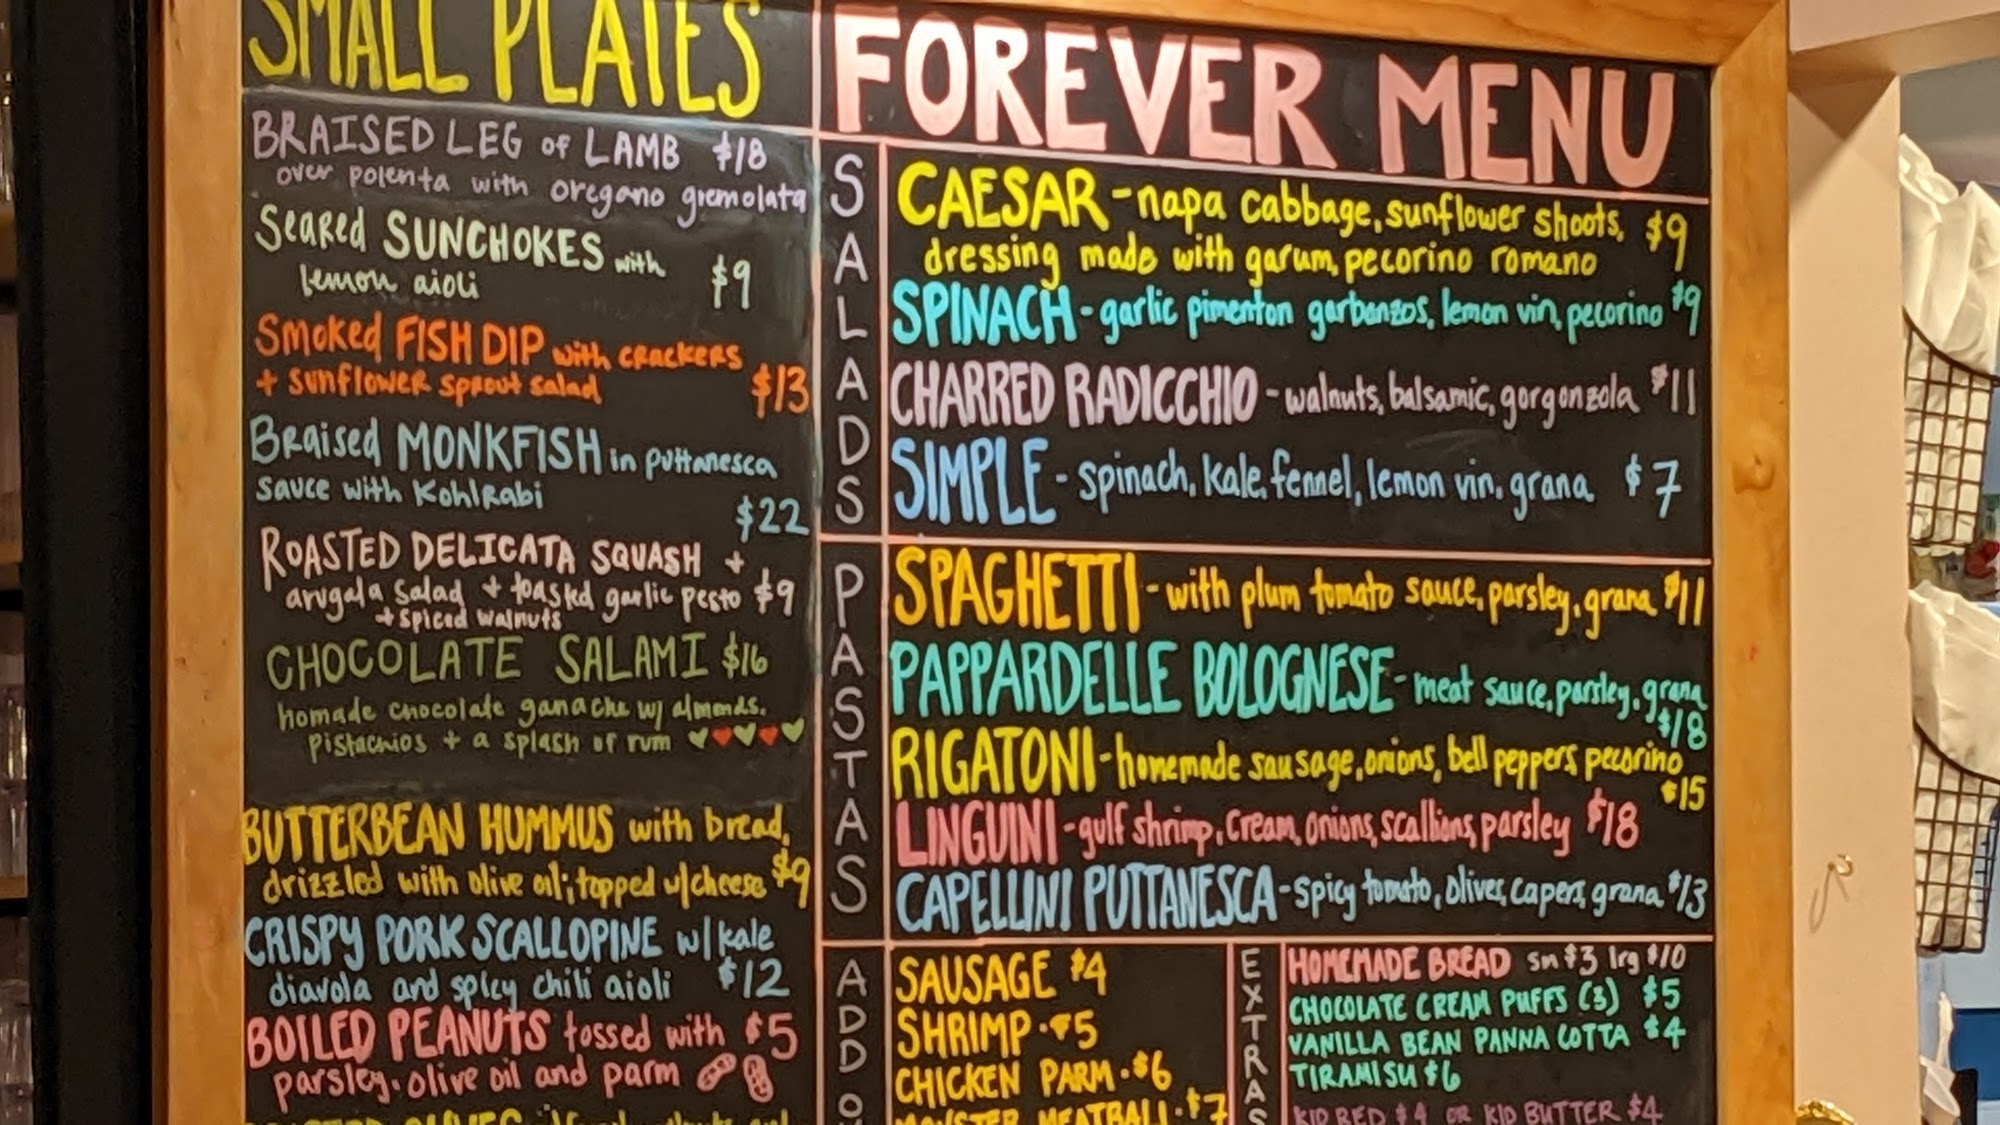 SMALL PLATES
BRAISED LEG of LAMB $18
over polenta with oregano gremolata
Seared SUNCHOKES with
lemon aioli $9
Smoked FISH DIP with crackers
+ sunflower sprout salad $13
Braised MONKFISH in puttanesca
sauce with Kohlrabi
$22
ROASTED DELICATA SQUASH +
arugala salad + toasted garlic pesto $9
+ spiced walnuts
CHOCOLATE SALAMI $16
homade chocolate ganache w/ almonds.
pistachios + a splash of rum
BUTTERBEAN HUMMUS with bread,
drizzled with olive oil; topped w/cheese $9
CRISPY PORK SCALLOPINE w/ kale
diavola and spicy chili aioli $12
BOILED PEANUTS tossed with $5
parsley. olive oil and parm
FOREVER MENU
SALADS
CAESAR - napa cabbage, sunflower shoots, $9
dressing made with garum, pecorino romano
SPINACH - garlic pimenton garbanzos, lemon vin, pecorino $9
CHARRED RADICCHIO - walnuts, balsamic, gorgonzola $11
SIMPLE - spinach, kale, fennel, lemon vin. grana $7
PASTAS
SPAGHETTI - with plum tomato sauce, parsley, grana $11
PAPPARDELLE BOLOGNESE - meat sauce, parsley, grana
$18
RIGATONI - homemade sausage, onions, bell peppers, pecorino
$15
LINGUINI - gulf shrimp, cream, onions, scallions, parsley $18
CAPELLINI PUTTANESCA - spicy tomato, olives, capers, grana $13
ADD O
SAUSAGE $4
SHRIMP · $5
CHICKEN PARM · $6
MONSTER MEATBALL · $7
EXTRAS
HOMEMADE BREAD sm $3 lrg $10
CHOCOLATE CREAM PUFFS (3) $5
VANILLA BEAN PANNA COTTA $4
TIRAMISU $6
KID RED $4 OR KID BUTTER $4